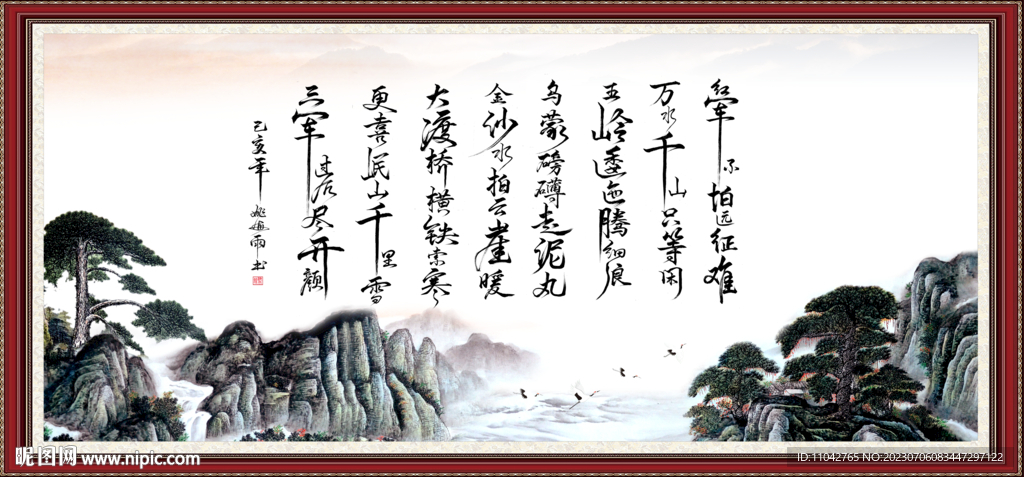 红军不怕远征难
万水千山只等闲
五岭逶迤腾细浪
乌蒙磅礴走泥丸
金沙水拍云崖暖
大渡桥横铁索寒
更喜岷山千里雪
三军过后尽开颜
己亥年 姚 雨书
昵图网 www.nipic.com
ID:11042765 NO:20230706083447297122